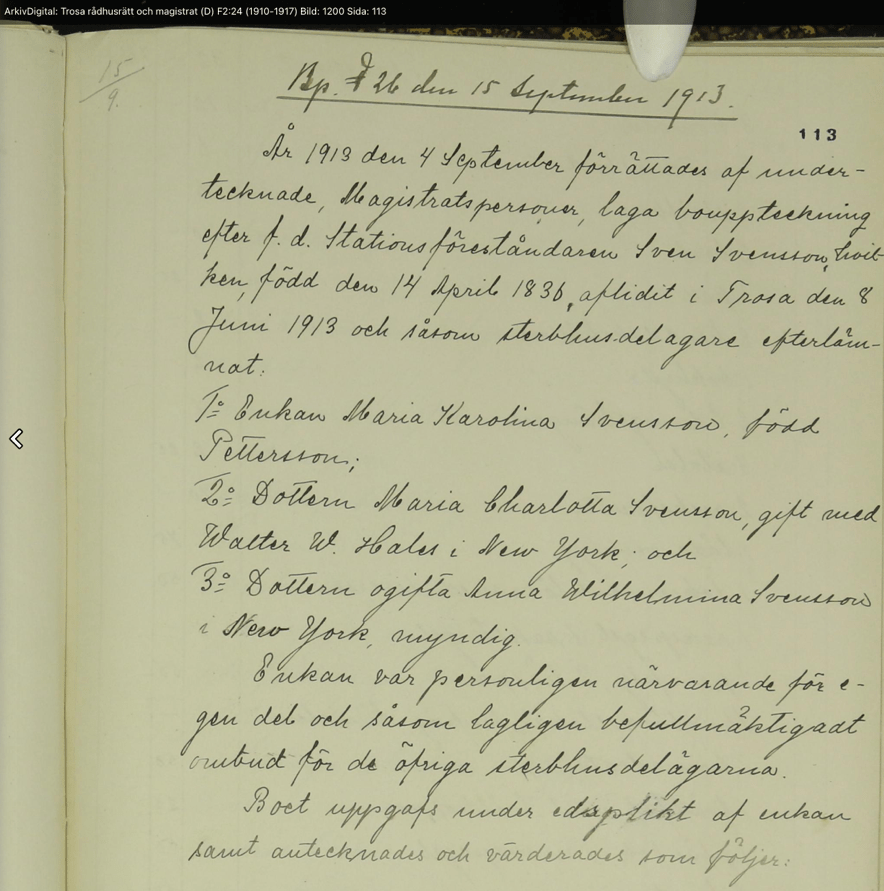 ArkivDigital: Trosa rådhusrätt och magistrat (D) F2:24 (1910-1917) Bild: 1200 Sida: 113
15/9.
Bp. § 26 den 15 September 1913.
113
År 1913 den 4 September förrättades af under-
tecknade, Magistratspersoner, laga bouppteckning
efter f. d. Stationsföreståndaren Sven Svensson, hvil-
ken, född den 14 April 1836, aflidit i Trosa den 8
Juni 1913 och såsom sterbhusdelagare efterläm-
nat:
1o Enkan Maria Karolina Svensson, född
Pettersson;
2o Dottern Maria Charlotta Svensson, gift med
Walter W. Hales i New York; och
3o Dottern ogifta Anna Wilhelmina Svensson
i New York, myndig.
Enkan var personligen närvarande för e-
gen del och såsom lagligen befullmäktigadt
ombud för de öfriga sterbhusdelägarna.
Boet uppgafs under edsplikt af enkan
samt antecknades och värderades som följer: